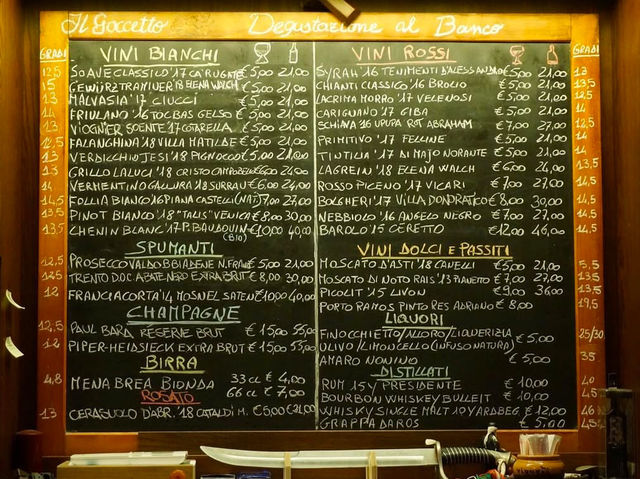 Il Goccetto Degustazione al Banco
GRADI
VINI BIANCHI
12,5 SOAVE CLASSICO '17 CA'RUGATE €5,00 21,00
15 GEWÜRZTRAMINER '18 ELENA WALCH €5,00 21,00
13 MALVASIA '17 CIUCCI €5,00 21,00
14 FRIULANO '16 TOC BAS GELSO €5,00 21,00
13 VIOGNIER SOENTE '17 COTARELLA €5,00 21,00
12,5 FALANGHINA '18 VILLA MATILDE €5,00 21,00
13 VERDICCHIO JESI '18 PIGNOCCO €5,00 21,00
13 GRILLO LALUCI '18 CRISTO CAMPOBELLO €6,00 24,00
14 VERMENTINO GALLURA '18 SURRAU €6,00 24,00
14,5 FOLLIA BIANCO '16 PIANA CASTELLI (NAT) 7,00 27,00
13,5 PINOT BIANCO '16 "TALIS" VENICA €8,00 30,00
13,5 CHENIN BLANC '17 P. BAUDOUIN €10,00 40,00
(BIO)
SPUMANTI
12,5 PROSECCO VALDOBBIADENE N. FRAN €5,00 21,00
12,5 TRENTO D.O.C. ABATE NERO EXTRA BRUT €8,00 30,00
12 FRANCIACORTA '14 MOSNEL SATEN €10,00 40,00
CHAMPAGNE
12,5 PAUL BARA RÉSERVE BRUT €15,00 55,00
12 PIPER-HEIDSIECK EXTRA BRUT €15,00 55,00
BIRRA
4,8 MENABREA BIONDA 33 CL € 4,00
66 CL € 7,00
ROSATO
13 CERASUOLO D'ABR. '18 CATALDI M. €5,00 €21,00
VINI ROSSI
GRADI
SYRAH '16 TENIMENTI D'ALESSANDRO €5,00 21,00 13
CHIANTI CLASSICO '16 BROLIO €5,00 21,00 13,5
LACRIMA MORRO '17 VELENOSI €5,00 21,00 12,5
CARIGNANO '17 GIBA €5,00 21,00 14
SCHIAVA '16 ROT ABRAHAM €7,00 27,00 12,5
PRIMITIVO '17 FELLINE €5,00 21,00 14
TINTILIA '17 DI MAJO NORANTE €5,00 21,00 13,5
LAGREIN '18 ELENA WALCH €6,00 26,00 13
ROSSO PICENO '17 VICARI €7,00 27,00 14,5
BOLGHERI '17 VILLA DONORATICO €8,00 30,00 14
NEBBIOLO '16 ANGELO NEGRO €7,00 27,00 14
BAROLO '15 CERETTO €12,00 46,00 14,5
VINI DOLCI E PASSITI
MOSCATO D'ASTI '18 CANELLI €5,00 21,00 5,5
MOSCATO DI NOTO RAIS '13 PIANETTO €7,00 27,00 13,5
PICOLIT '15 LIVON €9,00 36,00 13,5
PORTO RAMOS PINTO RES ADRIANO €8,00 19,5
LIQUORI
FINOCCHIETTO/ALLORO/LIQUERIZIA 25/30
ULIVO/LIMONCELLO (INFUSO NATURA) €5,00
AMARO NONINO €5,00 35
DISTILLATI
RUM 15Y PRESIDENTE €10,00 40
BOURBON WHISKEY BULLEIT €10,00
WHISKY SINGLE MALT 10Y ARDBEG €12,00 46
GRAPPA DAROS €5,00